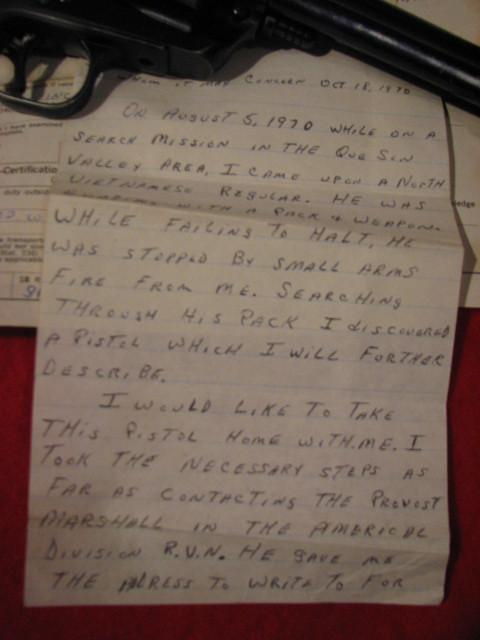 WHOM IT MAY CONCERN OCT 18, 1970
ON AUGUST 5, 1970 WHILE ON A
SEARCH MISSION IN THE QUE SON
VALLEY AREA, I CAME UPON A NORTH
VIETNAMESE REGULAR. HE WAS
RUNNING WITH A PACK & WEAPON.
WHILE FAILING TO HALT, HE
WAS STOPPED BY SMALL ARMS
FIRE FROM ME. SEARCHING
THROUGH HIS PACK I DISCOVERED
A PISTOL WHICH I WILL FURTHER
DESCRIBE.
I WOULD LIKE TO TAKE
THIS PISTOL HOME WITH ME. I
TOOK THE NECESSARY STEPS AS
FAR AS CONTACTING THE PROVOST
MARSHALL IN THE AMERICAL
DIVISION R.V.N. HE GAVE ME
THE ADRESS TO WRITE TO FOR
-Certificatio
duty outsid